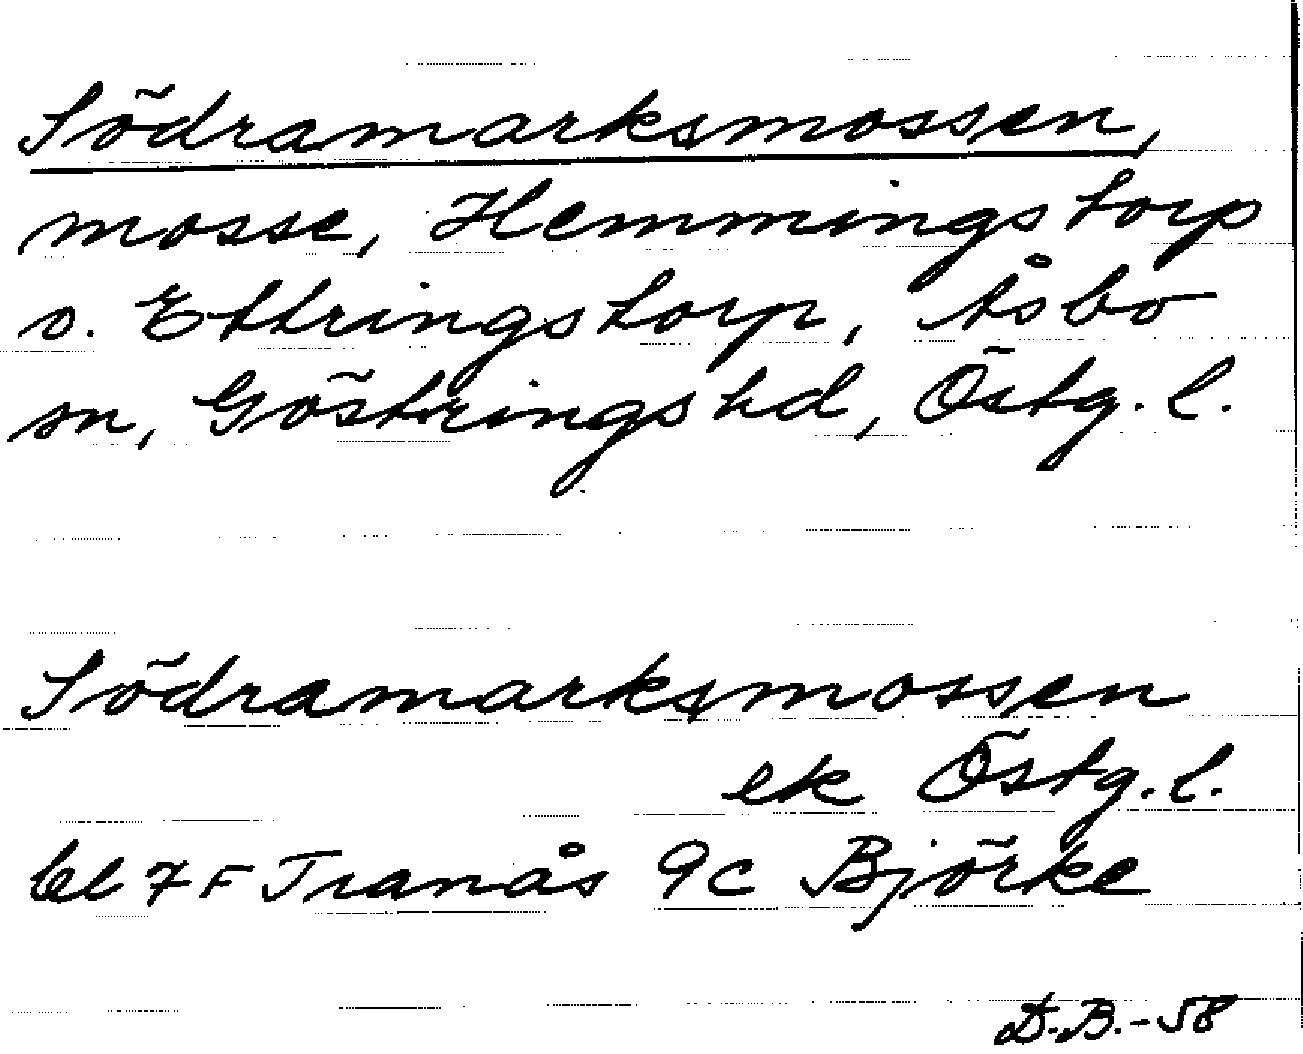 Södramarksmossen,
mosse, Hemmingstorp
o. Ettringstorp, Åsbo
sn, Göstringshd, Östg. l.
Södramarksmossen
ek Östg. l.
bl 7 F Tranås 9c Björke
D.B. - 58